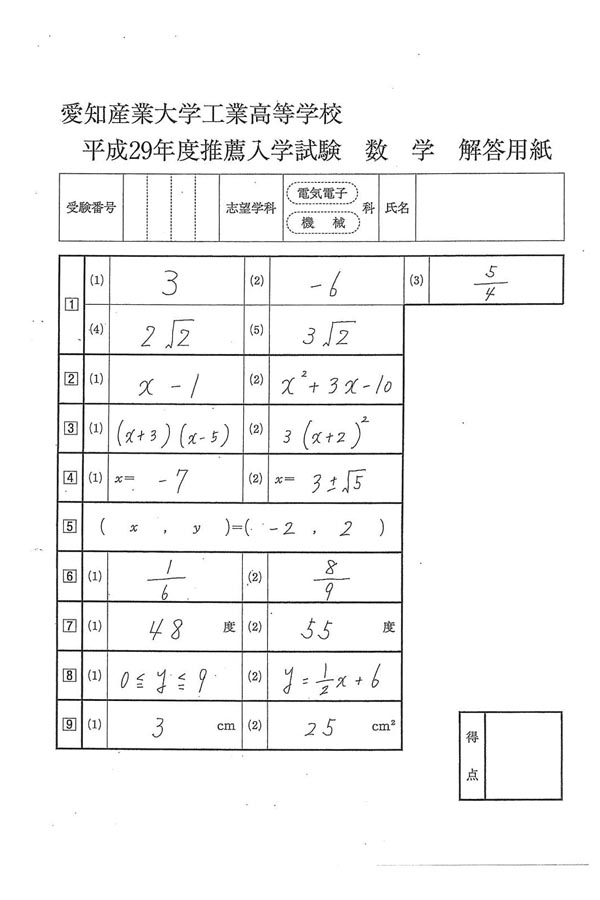 愛知産業大学工業高等学校
平成29年度推薦入学試験 数 学 解答用紙
受験番号 志望学科 電気電子 機 械 科 氏名
1 (1) 3 (2) -6 (3) 5/4
(4) 2√2 (5) 3√2
2 (1) x - 1 (2) x² + 3x - 10
3 (1) (x+3)(x-5) (2) 3(x+2)²
4 (1) x= -7 (2) x= 3±√5
5 ( x , y )=( -2 , 2 )
6 (1) 1/6 (2) 8/9
7 (1) 48 度 (2) 55 度
8 (1) 0≦y≦9 (2) y=1/2x+6
9 (1) 3 cm (2) 25 cm²
得点